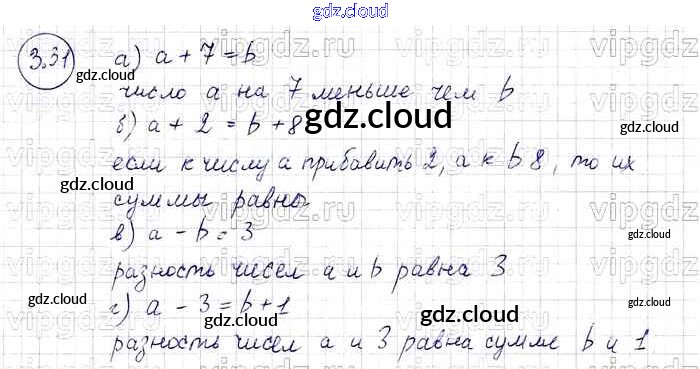 gdz.cloud
3.31 а) a + 7 = b
gdz.cloud gdz.cloud
число a на 7 меньше чем b
б) a + 2 = b + 8
gdz.cloud
если к числу a прибавить 2, а к b 8, то их
gdz.cloud gdz.cloud
суммы равны.
в) a - b = 3
gdz.cloud
разность чисел a и b равна 3
gdz.cloud
г) a - 3 = b + 1
gdz.cloud gdz.cloud
разность чисел a и 3 равна сумме b и 1
vipgdz.ru